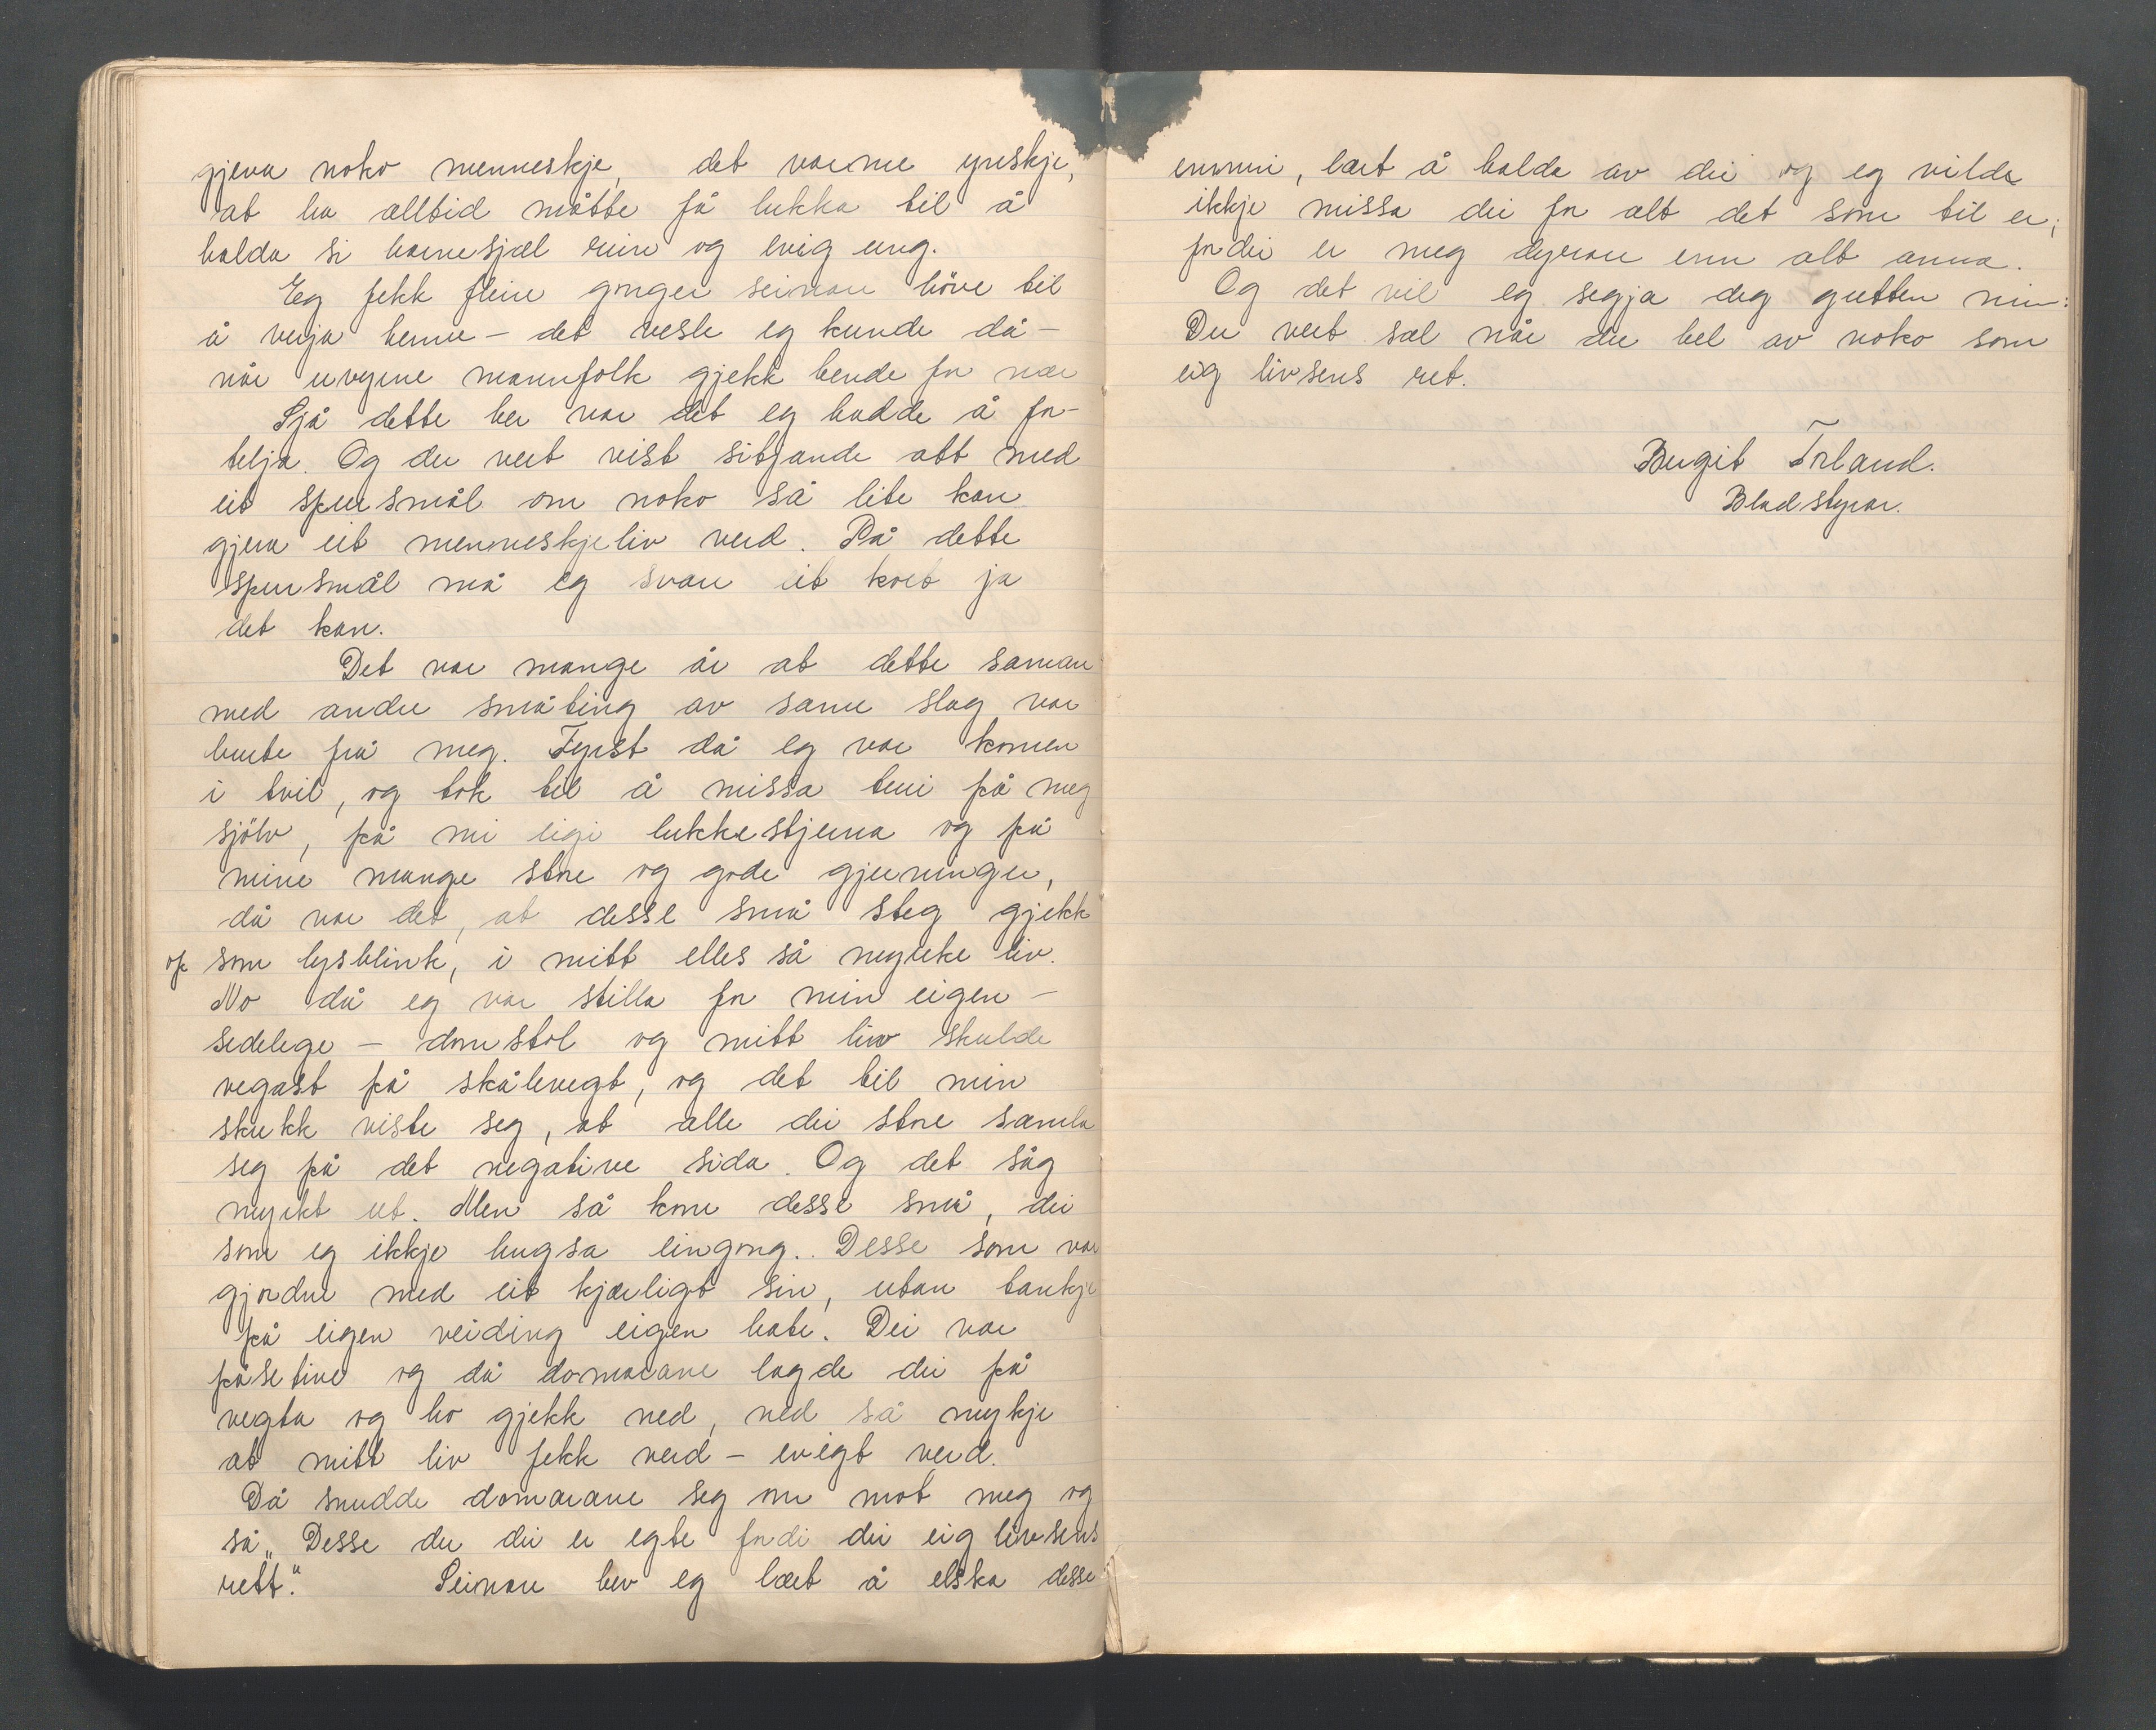 gjeva noko menneskje, det varme ynskje,
at ho alltid måtte få lukka til å
halda si barnesjæl rein og evig ung.
Eg fekk fleire gonger seinare höve til
å verja henne - det vesle eg kunde då -
når uvyrne mannfolk gjekk hende for nær
Sjå dette her var det eg hadde å for-
telja. Og du vert vist sitjande att med
eit spursmål om noko så lite kan
gjeva eit menneskjeliv verd. På dette
spursmål må eg svare eit kort ja
det kan.
Det var mange år at dette saman
med andre småting av same slag var
burte frå meg. Fyrst då eg var komen
i tvil, og tok til å missa trui på meg
sjölv, på mi eigi lukkestjerna og på
mine mange store og gode gjerningar,
då var det, at desse små steg gjekk
op som lysblink, i mitt elles så myrke liv.
No då eg var stilla for min eigen -
sedelege - domstol og mitt liv skulde
vegast på skålvegt, og det til min
skrekk viste seg, at alle dei store samla
seg på det negative sida. Og det såg
myrkt ut. Men så kom desse små, dei
som eg ikkje hugsa eingong. Desse som var
gjordne med eit kjærligt sin, utan tankje
på eigen veiding eigen bate. Dei var
påsetive og då domarane lagde dei på
vegta og ho gjekk ned, ned så mykje
at mitt liv fekk verd - evigt verd.
Då snudde domarane seg om mot meg og
sa „Desse der dei er egte fordi dei eig livsens
rett." Seinare hev eg lært å elska desse
emnni, lært å halda av dei og eg vilde
ikkje missa dei for alt det som til er;
for dei er meg dyrare enn alt anna.
Og det vil eg segja deg gutten min:
Du vert sæl når du hel av noko som
eig livsens ret.
Bergit Förland.
Bladstyrar.